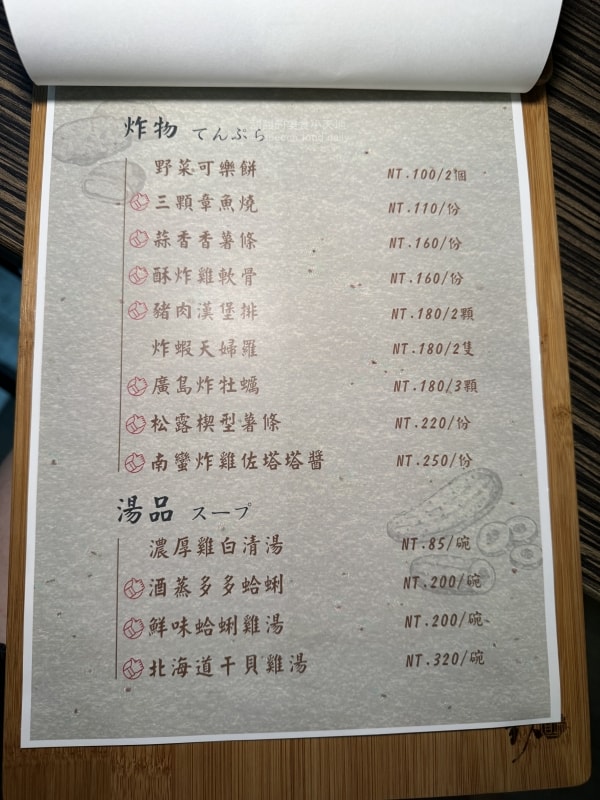 炸物 てんぷら
野菜可樂餅 NT.100/2個
三顆章魚燒 NT.110/份
蒜香香薯條 NT.160/份
酥炸雞軟骨 NT.160/份
豬肉漢堡排 NT.180/2顆
炸蝦天婦羅 NT.180/2隻
廣島炸牡蠣 NT.180/3顆
松露楔型薯條 NT.220/份
南蠻炸雞佐塔塔醬 NT.250/份
湯品 スープ
濃厚雞白清湯 NT.85/碗
酒蒸多多蛤蜊 NT.200/碗
鮮味蛤蜊雞湯 NT.200/碗
北海道干貝雞湯 NT.320/碗